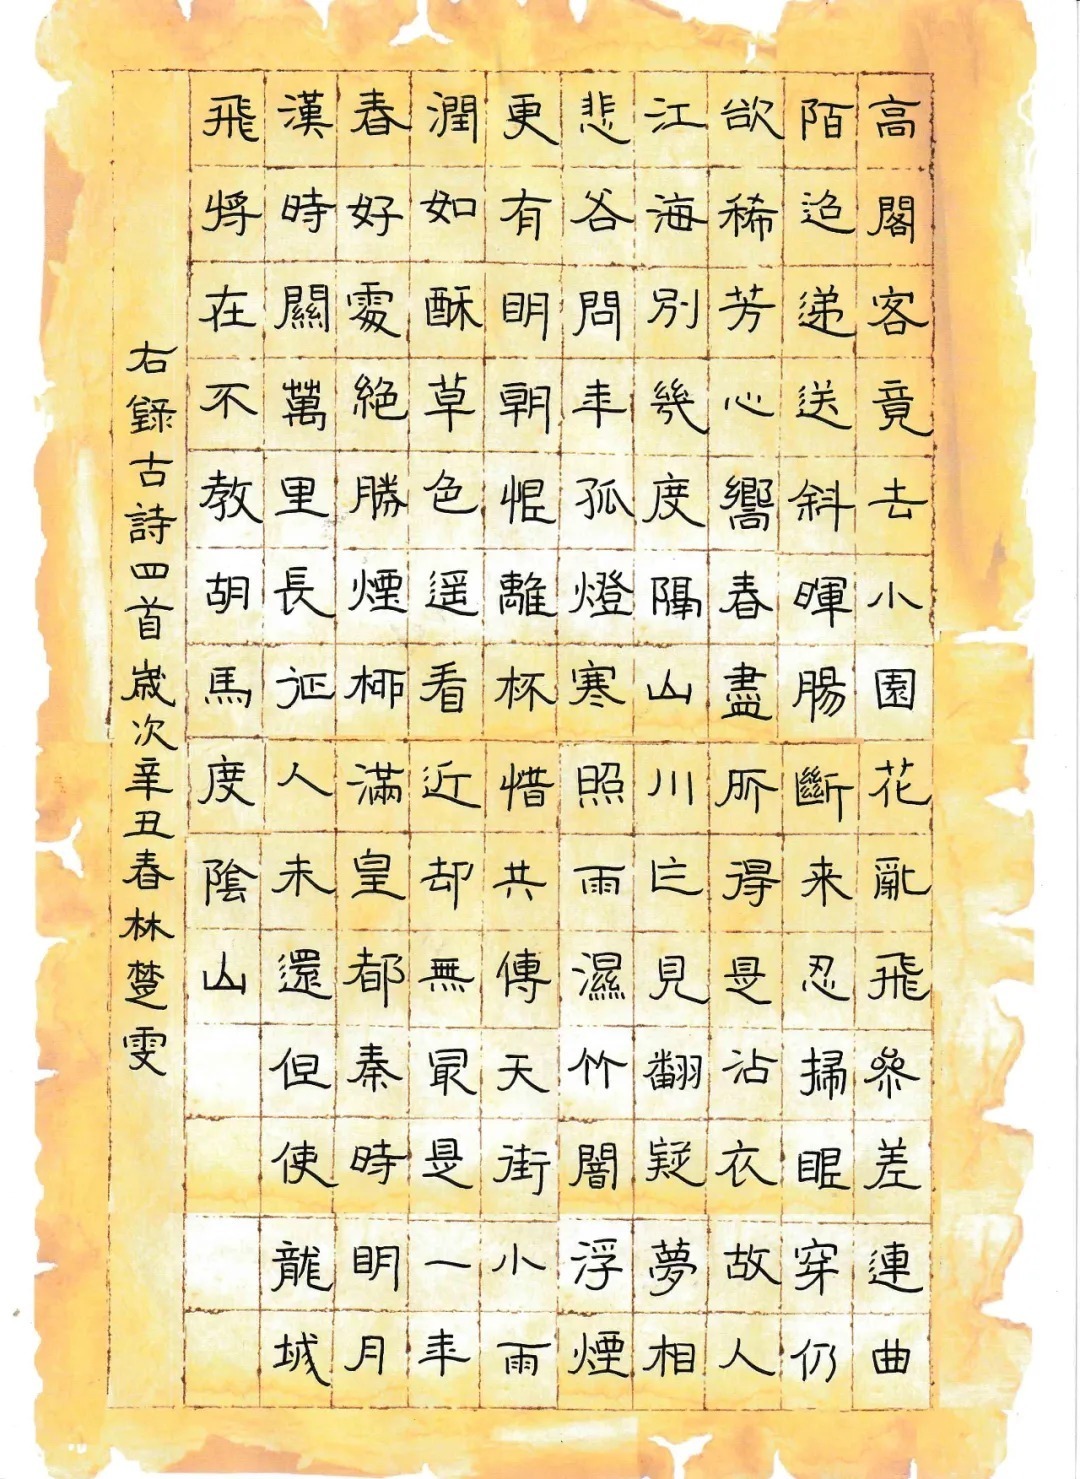 高閣客竟去小園花亂飛參差連曲
陌迢遞送斜暉腸斷来忍掃眼穿仍
欲稀芳心嚮春盡所得是沾衣故人
江海別幾度隔山川乍見翻疑夢相
悲各問年孤燈寒照雨濕竹闇浮煙
更有明朝恨離杯惜共傳天街小雨
潤如酥草色遥看近却無最是一年
春好處絕勝煙柳滿皇都秦時明月
漢時關萬里長征人未還但使龍城
飛將在不教胡馬度陰山
右錄古詩四首歲次辛丑春林楚雯